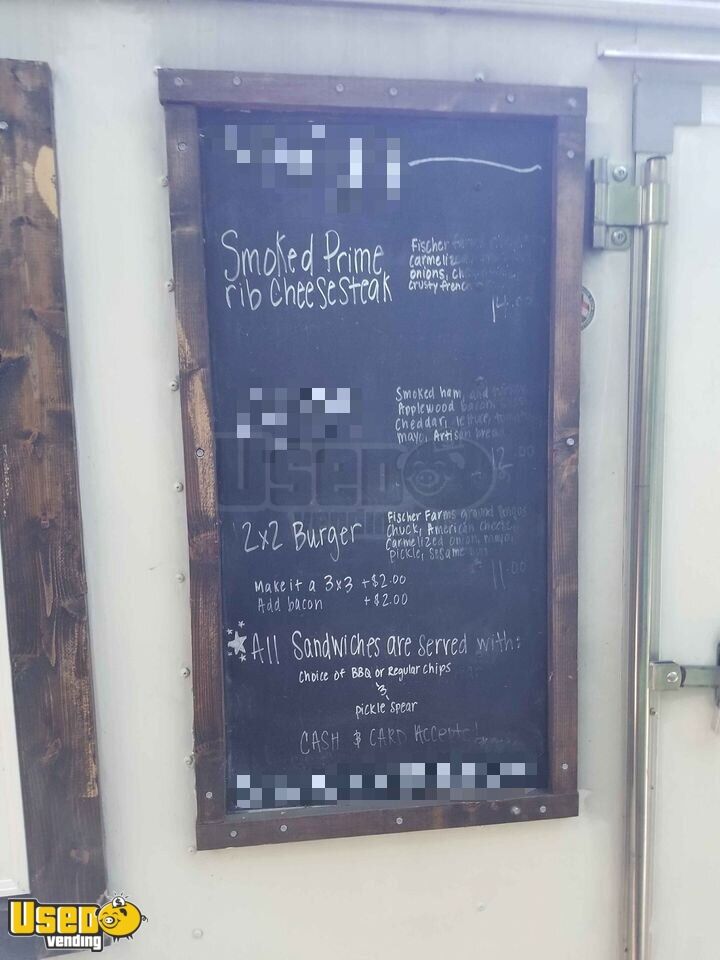 Smoked Prime
rib Cheesesteak
Fischer
carmelized
onions,
crusty
14.00
Smoked ham, and
Applewood bacon,
Cheddar, lettuce, tomato,
mayo, Artisan bread
12.00
2x2 Burger
Fischer Farms ground
Chuck, American cheese,
Carmelized onion, mayo,
pickle, sesame bun
11.00
Make it a 3x3 +$2.00
Add bacon +$2.00
All Sandwiches are served with:
Choice of BBQ or Regular Chips
pickle spear
CASH & CARD Accepted
USED
vending
USED
vending